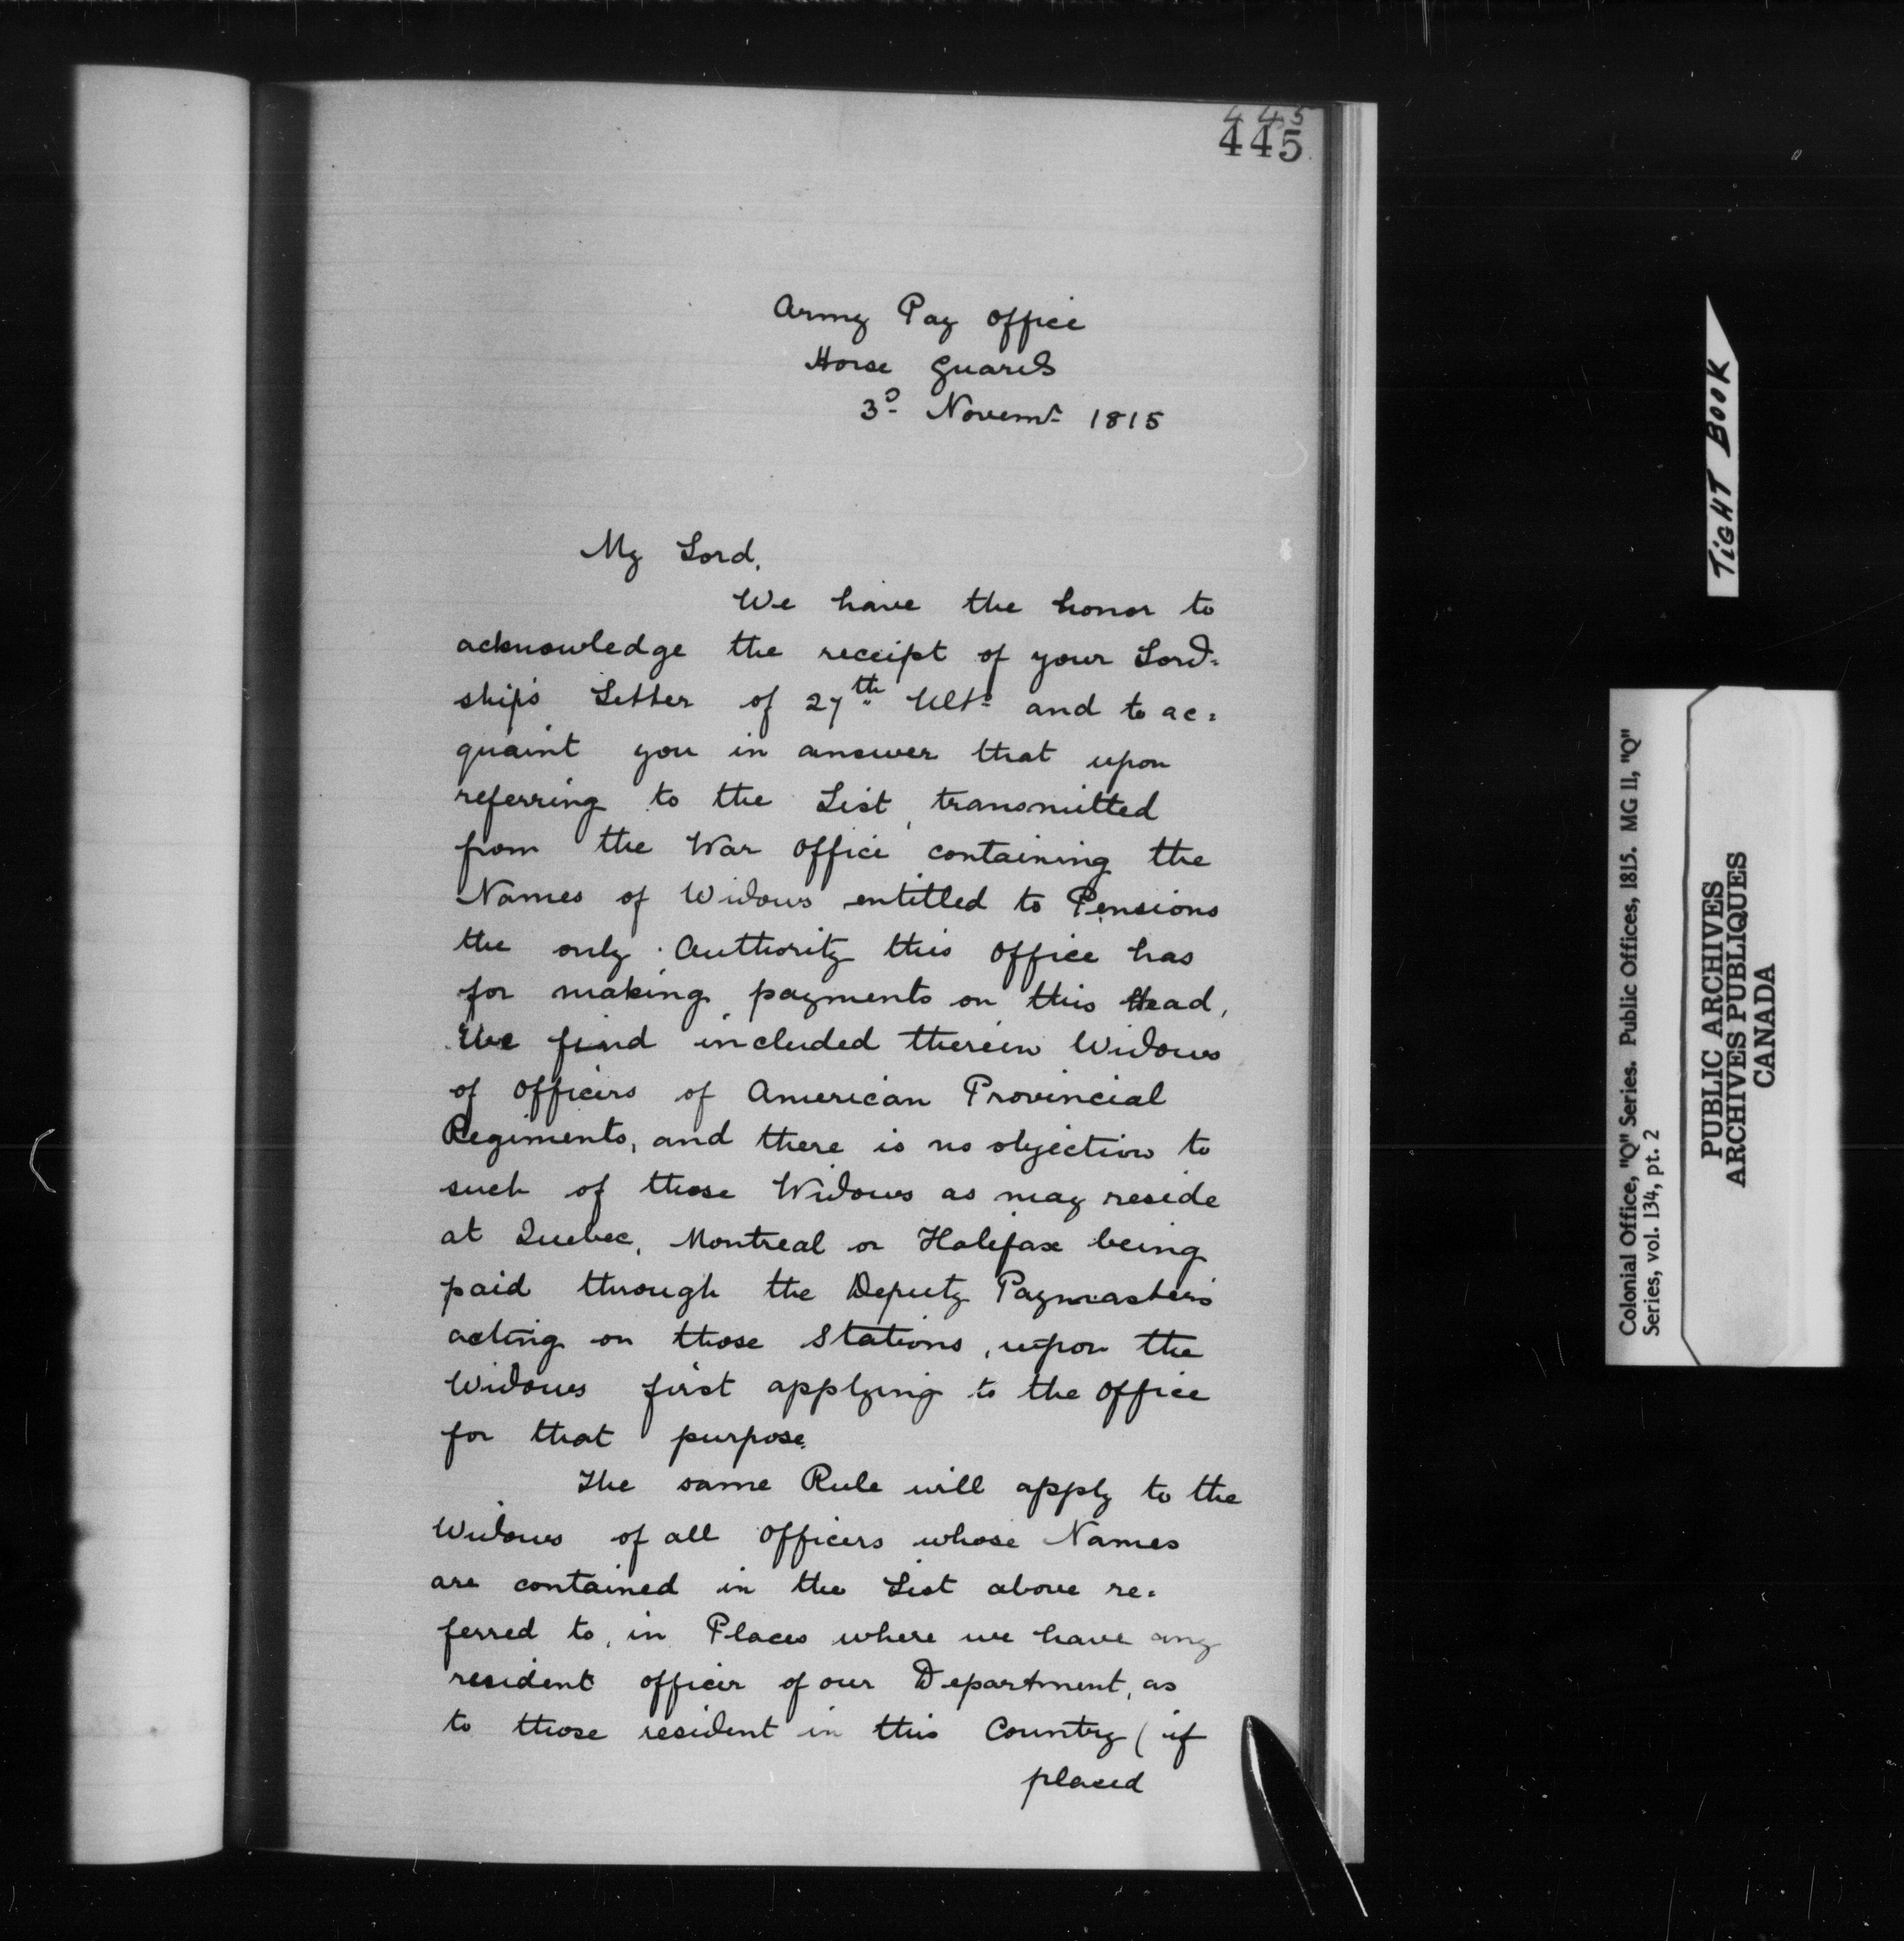 445
445
Army Pay Office
Horse Guards
3ᵈ Novemʳ 1815
My Lord,
We have the honor to
acknowledge the receipt of your Lord=
ship's Letter of 27th Ulto and to ac=
quaint you in answer that upon
referring to the List, transmitted
from the War Office containing the
Names of Widows entitled to Pensions
the only Authority this Office has
for making payments on this Head,
We find included therein Widows
of Officers of American Provincial
Regiments, and there is no objection to
such of those Widows as may reside
at Quebec, Montreal or Halifax being
paid through the Deputy Paymasters
acting on those Stations, upon the
Widows first applying to the Office
for that purpose.
The same Rule will apply to the
Widows of all Officers whose Names
are contained in the List above re=
ferred to, in Places where we have any
resident officer of our Department, as
to those resident in this Country (if
placed
TIGHT BOOK
Colonial Office, "Q" Series. Public Offices, 1815. MG 11, "Q"
Series, vol. 134, pt. 2
PUBLIC ARCHIVES
ARCHIVES PUBLIQUES
CANADA